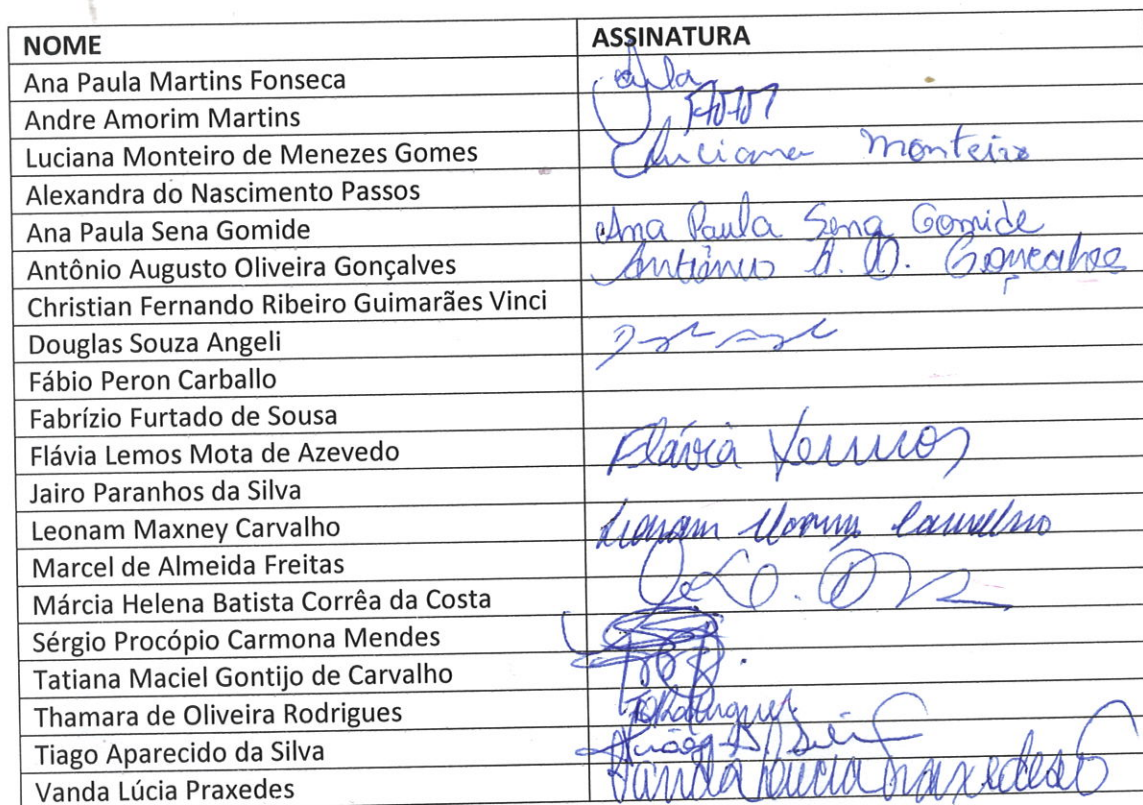 NOME ASSINATURA
Ana Paula Martins Fonseca
Andre Amorim Martins
Luciana Monteiro de Menezes Gomes Luciana Monteiro
Alexandra do Nascimento Passos
Ana Paula Sena Gomide Ana Paula Sena Gomide
Antônio Augusto Oliveira Gonçalves Antônio A. O. Gonçalves
Christian Fernando Ribeiro Guimarães Vinci
Douglas Souza Angeli
Fábio Peron Carballo
Fabrízio Furtado de Sousa
Flávia Lemos Mota de Azevedo Flávia Lemos
Jairo Paranhos da Silva
Leonam Maxney Carvalho Leonam Maxney Carvalho
Marcel de Almeida Freitas
Márcia Helena Batista Corrêa da Costa
Sérgio Procópio Carmona Mendes
Tatiana Maciel Gontijo de Carvalho
Thamara de Oliveira Rodrigues TORodrigues
Tiago Aparecido da Silva Tiago A. Silva
Vanda Lúcia Praxedes Vanda Lucia Praxedes